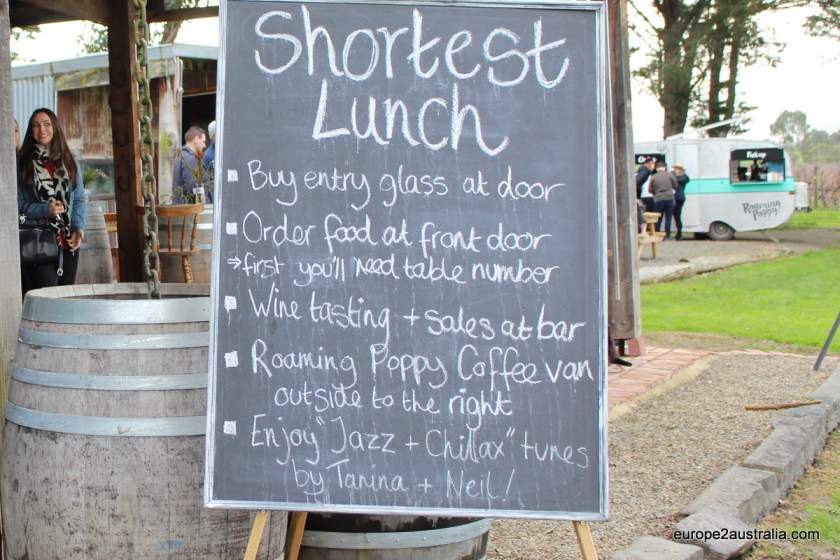 Shortest
Lunch
Buy entry glass at door
Order food at front door
→ first you'll need table number
Wine tasting + sales at bar
Roaming Poppy Coffee van
outside to the right
Enjoy "Jazz + Chillax" tunes
by Tanina + Neil!
Roaming
Poppy
europe2australia.com